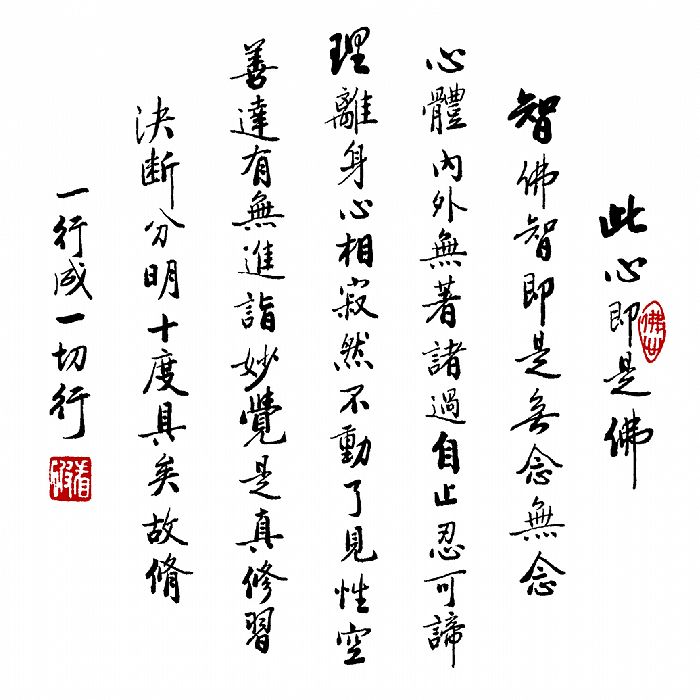 此心即是佛
智佛智即是無念無念
心體內外無著諸過自止忍可諦
理離身心相寂然不動了見性空
善達有無進詣妙覺是真修習
決斷分明十度具矣故脩
一行成一切行
看破